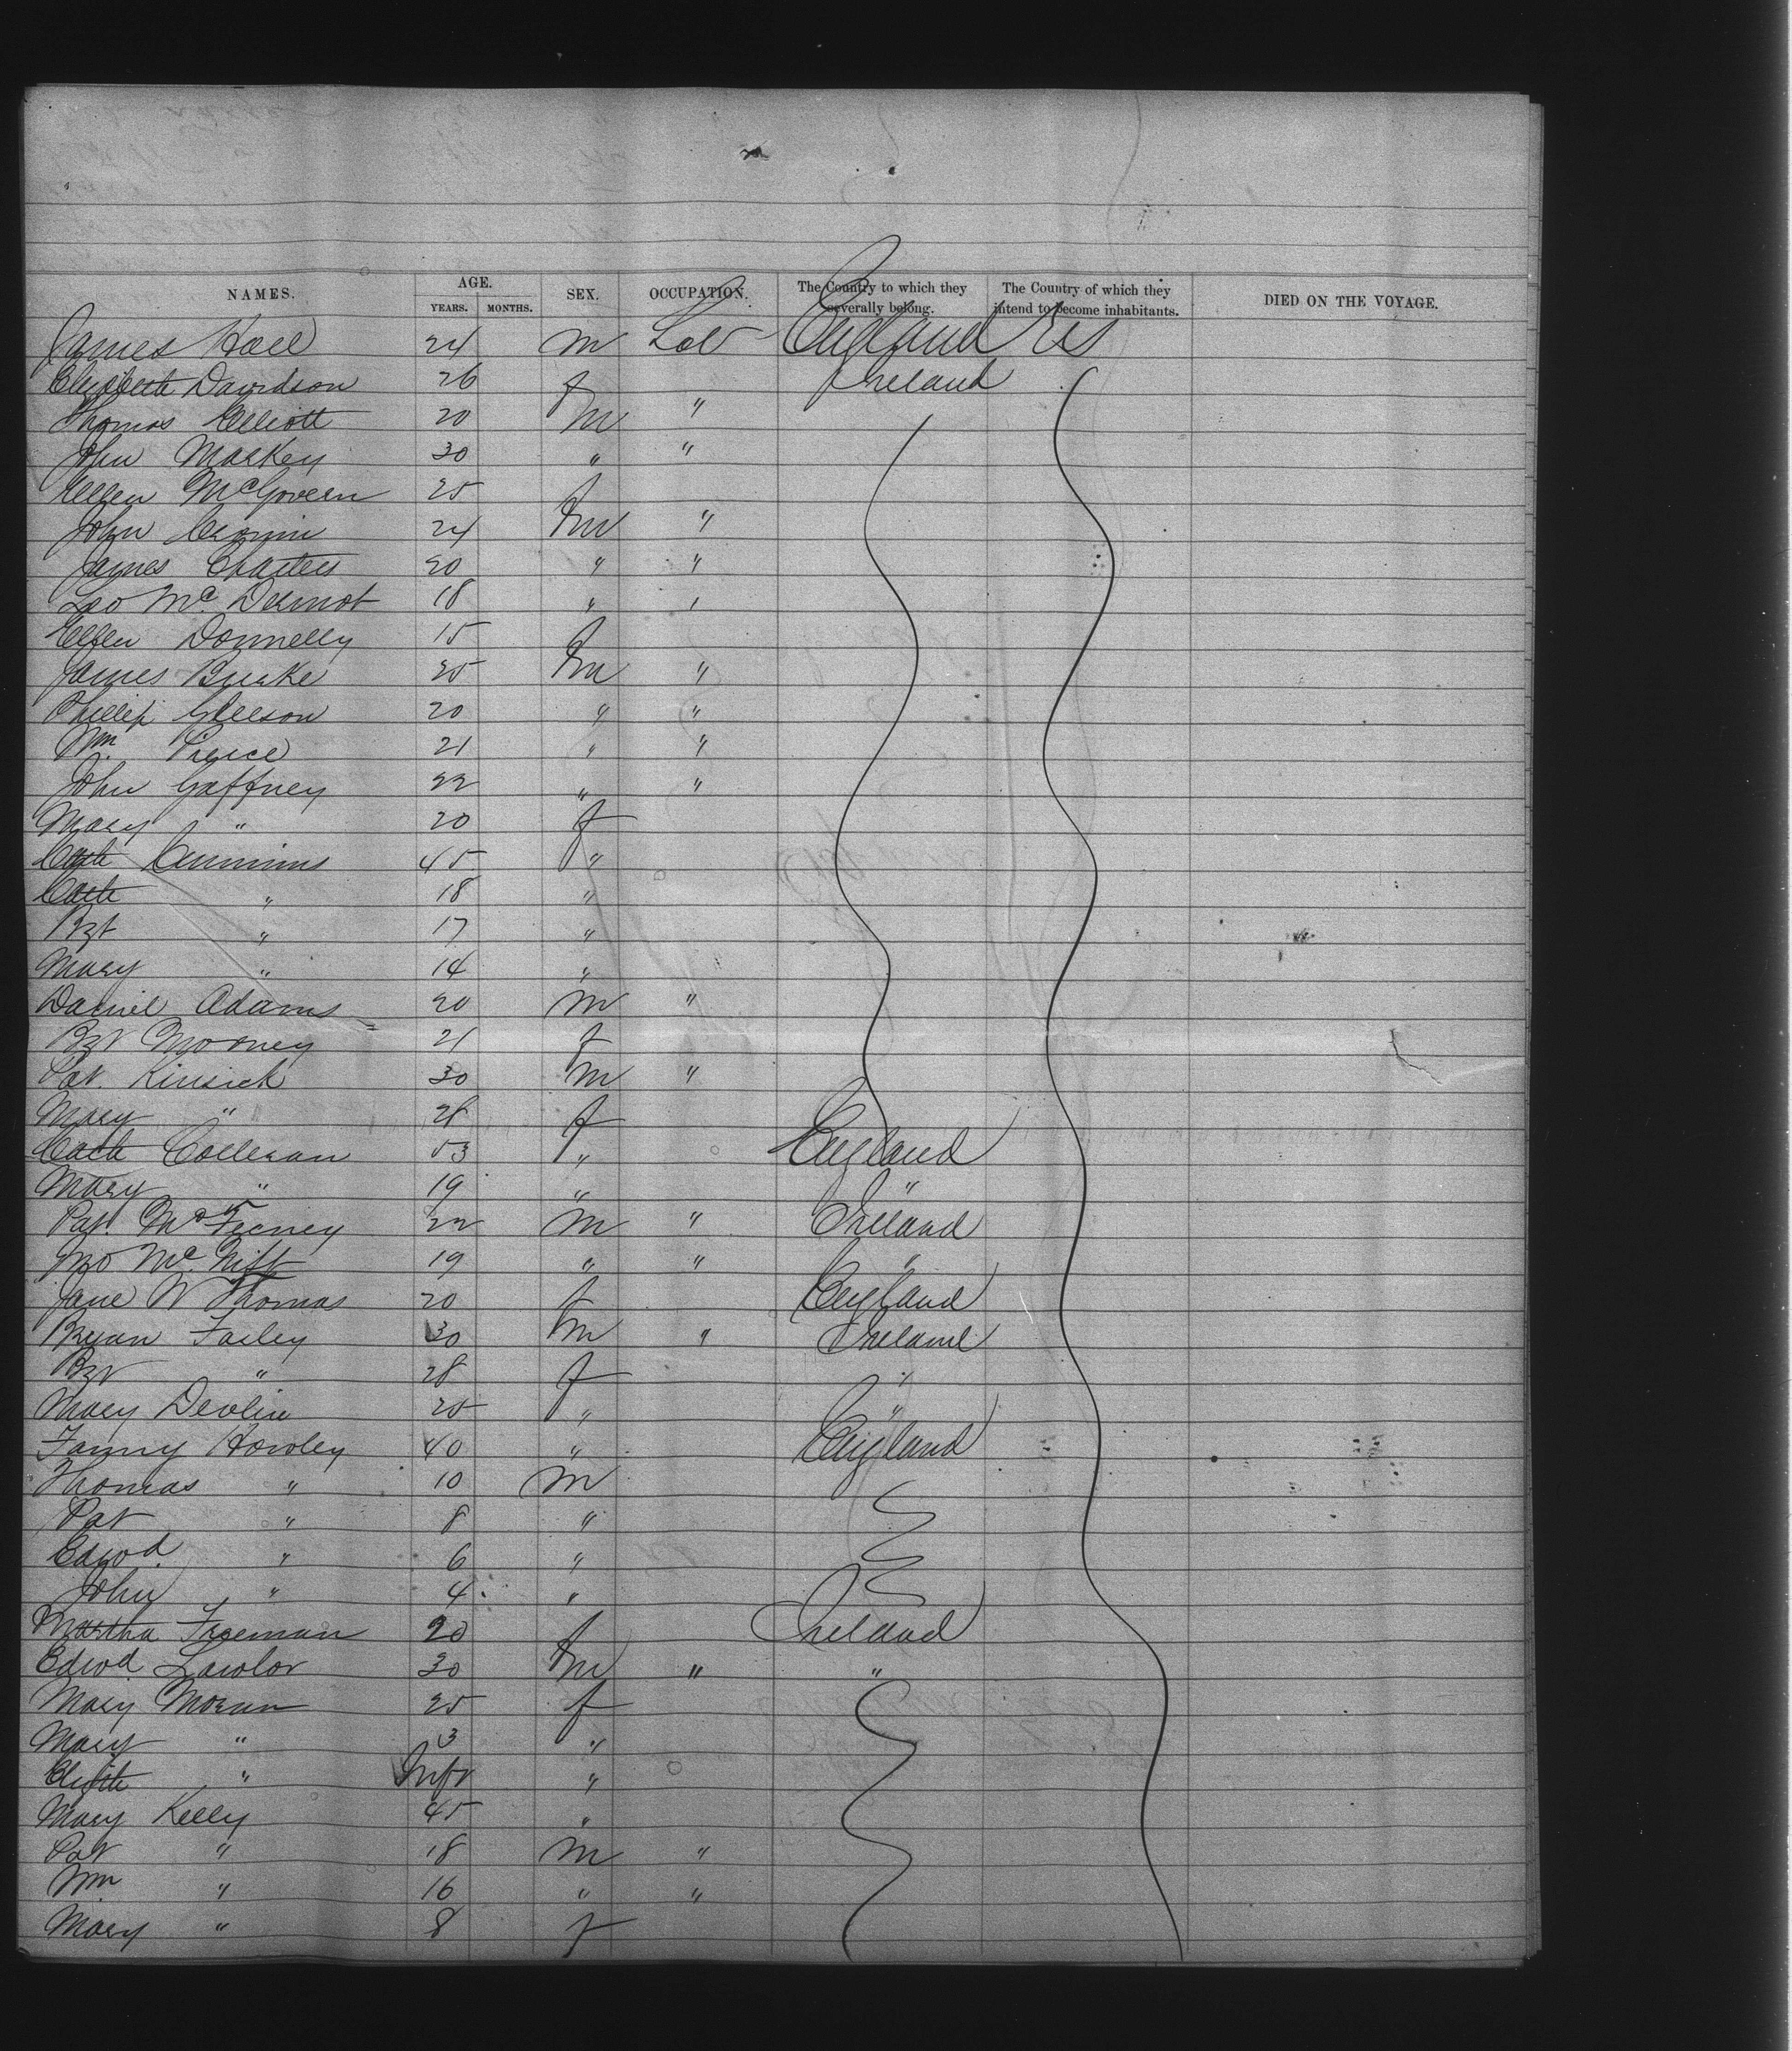 NAMES. AGE. YEARS. MONTHS. SEX. OCCUPATION. The Country to which they severally belong. The Country of which they intend to become inhabitants. DIED ON THE VOYAGE.
James 24 m Lab England US
Elizabeth Davidson 26 f Ireland
Thomas Elliott 20 m "
John Mackey 30 " "
Ellen McGovern 25 f
John Cronin 24 m "
James Charters 20 " "
McDermot 18 " "
Ellen Donnelly 15 f
James Burke 25 m "
Phillip Gleeson 20 " "
Wm. Pierce 21 " "
John Gaffney 22 " "
Mary " 20 f
Cath Cummins 45 "
Cath " 18 "
Bgt " 17 "
Mary " 14 "
Daniel Adams 20 m "
Bgt Mooney 21 f
Pat. 30 m "
Mary " 28 f
Cath Colleran 53 " England
Mary " 19 " "
Pat. McFeeney 22 m " Ireland
Jno McNiff 19 " " "
Jane W Thomas 20 f England
Bryan Farley 30 m " Ireland
Bgt " 28 f "
Mary Devlin 25 " "
Fanny Howley 40 " England
Thomas " 10 m
Pat " 8 "
Edwd. " 6 "
John " 4 "
Martha Freeman 20 f Ireland
Edwd Lawlor 30 m " "
Mary Moran 25 f
Mary " 3 "
Elizth " Inft "
Mary Kelly 45 "
Pat " 18 m "
Wm " 16 " "
Mary " 8 f